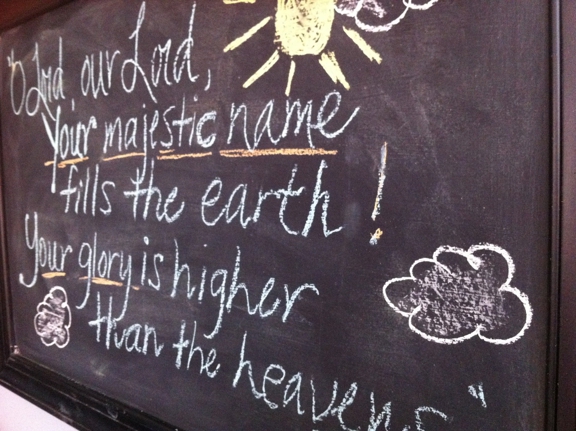 "O Lord, our Lord,
Your majestic name
fills the earth!
Your glory is higher
than the heavens."